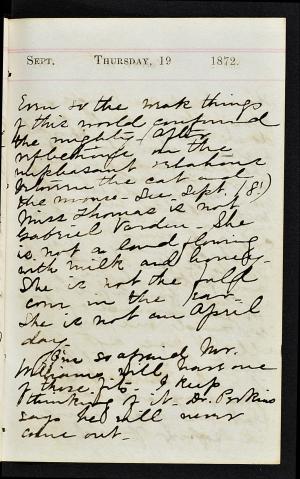 SEPT. THURSDAY, 19 1872.
Even so the weak things
of this world confound
the mighty - (after
reflections on the
unpleasant relations
between the cat and
the mouse - See Sept. 18!)
Miss Thomas is not
Gabriel Varden - She
is not a land flowing
with milk and honey -
She is not the full
corn in the ear -
She is not an April
day -
I'm so afraid Mr.
Williams will have one
of those fits - I keep
thinking of it. Dr. Perkins
says he will never
come out -